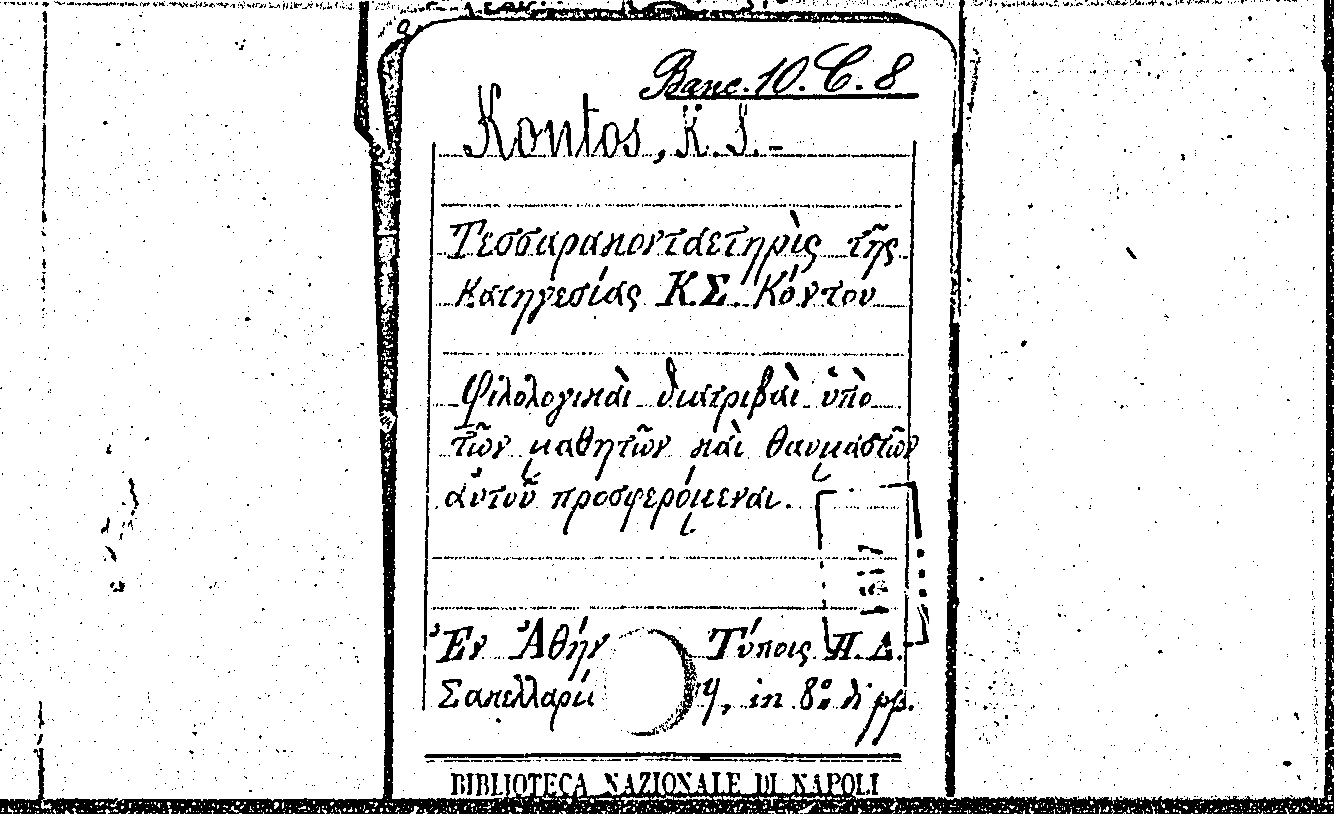 Banc. 10. C. 8
Kontos, K. S. -
Τεσσαρακονταετηρὶς τῆς
Κατηγεσίας Κ.Σ. Κόντου
Φιλολογικαὶ διατριβαὶ ὑπὸ
τῶν μαθητῶν καὶ θαυμαστῶν
αὐτοῦ προσφερόμεναι.
Ἐν Ἀθήν Τύποις Π. Δ.
Σακελλαρί in 8º
BIBLIOTECA NAZIONALE DI NAPOLI